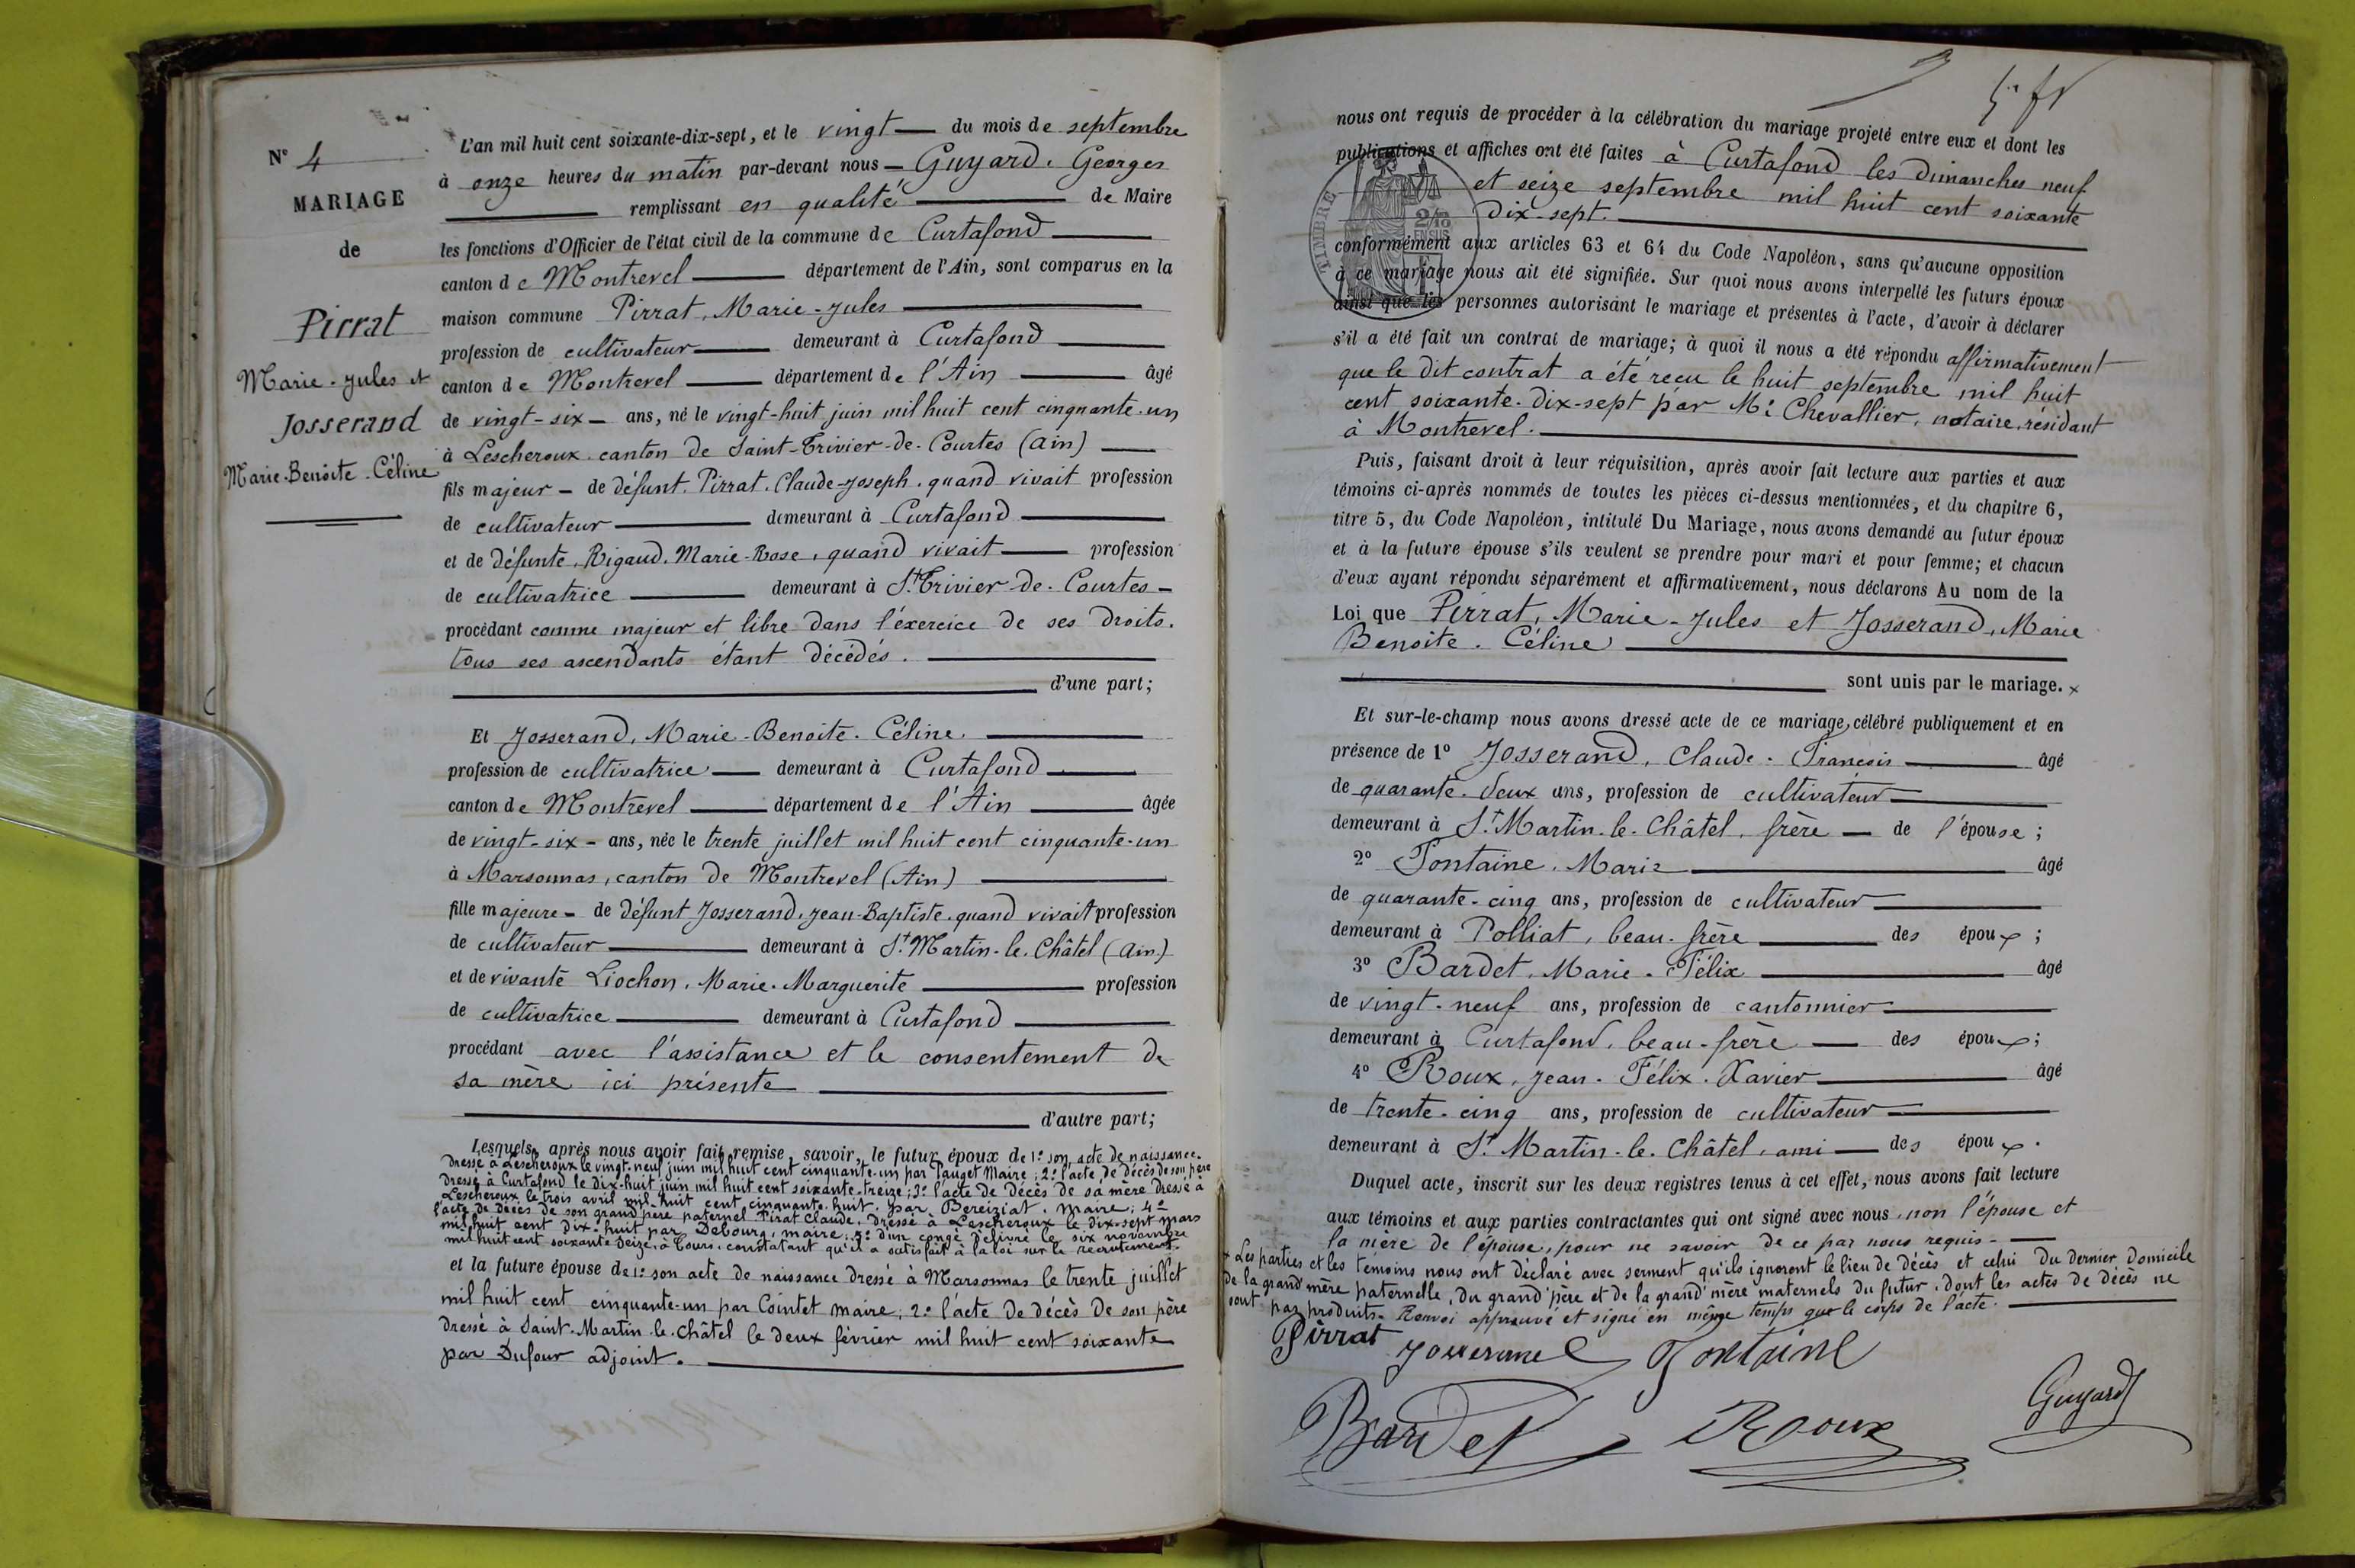 N° 4
MARIAGE
de
Pirrat
Marie-Jules et
Josserand
Marie-Benoite-Céline
L'an mil huit cent soixante-dix-sept, et le vingt du mois de septembre
à onze heures du matin par-devant nous Guyard, Georges
remplissant en qualité de Maire
les fonctions d'Officier de l'état civil de la commune de Curtafond
canton de Montrevel département de l'Ain, sont comparus en la
maison commune Pirrat, Marie-Jules
profession de cultivateur demeurant à Curtafond
canton de Montrevel département de l'Ain âgé
de vingt-six ans, né le vingt-huit juin mil huit cent cinquante-un
à Lescheroux, canton de Saint-Trivier-de-Courtes (Ain)
fils majeur de défunt Pirrat, Claude-Joseph, quand vivait profession
de cultivateur demeurant à Curtafond
et de défunte, Rigaud, Marie-Rose, quand vivait profession
de cultivatrice demeurant à St Trivier-de-Courtes
procédant comme majeur et libre dans l'éxercice de ses droits.
tous ses ascendants étant décédés.
d'une part;
Et Josserand, Marie-Benoite-Céline,
profession de cultivatrice demeurant à Curtafond
canton de Montrevel département de l'Ain âgée
de vingt-six ans, née le trente juillet mil huit cent cinquante-un
à Marsonnas, canton de Montrevel (Ain)
fille majeure de défunt Josserand, Jean-Baptiste, quand vivait profession
de cultivateur demeurant à St Martin-le-Châtel (Ain)
et de vivante Liochon, Marie-Marguerite profession
de cultivatrice demeurant à Curtafond
procédant avec l'assistance et le consentement de
sa mère ici présente
d'autre part;
Lesquels, après nous avoir fait remise, savoir, le futur époux de 1° son acte de naissance
dressé à Lescheroux le vingt-neuf juin mil huit cent cinquante-un par Pauget Maire; 2° l'acte de décès de son père
dressé à Curtafond le dix-huit juin mil huit cent soixante-treize; 3° l'acte de décès de sa mère dressé à
Lescheroux le trois avril mil huit cent cinquante-huit par Bereiziat, maire; 4°
l'acte de décès de son grand père paternel Pirat Claude, dressé à Lescheroux le dix-sept mars
mil huit cent dix-huit par Debourg, maire; 5° d'un congé délivré le six novembre
mil huit cent soixante seize, à Tours, constatant qu'il a satisfait à la loi sur le recrutement.
et la future épouse de 1° son acte de naissance dressé à Marsonnas le trente juillet
mil huit cent cinquante-un par Cointet maire; 2° l'acte de décès de son père
dressé à Saint-Martin-le-Châtel le deux février mil huit cent soixante
par Dufour adjoint.
nous ont requis de procéder à la célébration du mariage projeté entre eux et dont les
publications et affiches ont été faites à Curtafond les dimanches neuf
et seize septembre mil huit cent soixante
dix-sept.
TIMBRE
conformément aux articles 63 et 64 du Code Napoléon, sans qu'aucune opposition
à ce mariage nous ait été signifiée. Sur quoi nous avons interpellé les futurs époux
ainsi que les personnes autorisant le mariage et présentes à l'acte, d'avoir à déclarer
s'il a été fait un contrat de mariage; à quoi il nous a été répondu affirmativement
que le dit contrat a été reçu le huit septembre mil huit
cent soixante-dix-sept par Me Chevallier, notaire, résidant
à Montrevel.
Puis, faisant droit à leur réquisition, après avoir fait lecture aux parties et aux
témoins ci-après nommés de toutes les pièces ci-dessus mentionnées, et du chapitre 6,
titre 5, du Code Napoléon, intitulé Du Mariage, nous avons demandé au futur époux
et à la future épouse s'ils veulent se prendre pour mari et pour femme; et chacun
d'eux ayant répondu séparément et affirmativement, nous déclarons Au nom de la
Loi que Pirrat, Marie-Jules et Josserand, Marie
Benoite-Céline
sont unis par le mariage. x
Et sur-le-champ nous avons dressé acte de ce mariage, célébré publiquement et en
présence de 1° Josserand, Claude-François âgé
de quarante-deux ans, profession de cultivateur
demeurant à St Martin-le-Châtel, frère de l'épouse;
2° Fontaine, Marie âgé
de quarante-cinq ans, profession de cultivateur
demeurant à Polliat, beau-frère des époux;
3° Bardet, Marie-Félix âgé
de vingt-neuf ans, profession de cantonnier
demeurant à Curtafond, beau-frère des époux;
4° Roux, Jean-Félix-Xavier âgé
de trente-cinq ans, profession de cultivateur
demeurant à St Martin-le-Châtel, ami des époux.
Duquel acte, inscrit sur les deux registres tenus à cet effet, nous avons fait lecture
aux témoins et aux parties contractantes qui ont signé avec nous, non l'épouse et
la mère de l'épouse, pour ne savoir de ce par nous requis.
x Les parties et les témoins nous ont déclaré avec serment qu'ils ignorent le lieu de décès et celui du dernier domicile
de la grand'mère paternelle, du grand'père et de la grand'mère maternels du futur, dont les actes de décès ne
sont pas produits. Renvoi approuvé et signé en même temps que le corps de l'acte.
Pirrat Josserand Fontaine
Bardet Roux Guyard